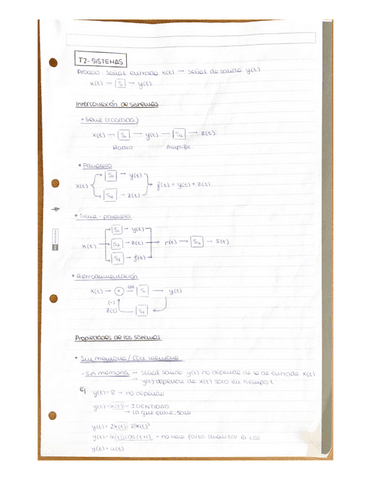 T2- SISTEMAS
Proceso señal entrada x(t) → señal de salida y(t)
x(t) → S → y(t)
Interconexión de sistemas
• Serie (cascada)
x(t) → S₁ → y(t) → S₂ → z(t)
Radio Amplific.
• Paralelo
x(t) S₁ → y(t)
S₂ → z(t)
f(t) = y(t) + z(t)
• Serie - paralelo
S₁ → y(t)
x(t) → S₂ → z(t) → r(t) → S₄ → s(t)
S₃ → f(t)
• Retroalimentación
x(t) → + → S₁ → y(t)
(-)
z(t) S₂
Propiedades de los sistemas
• Sin memoria / Con memoria
- Sin memoria → señal salida y(t) no depende de la de entrada x(t)
y(t) depende de x(t) solo en tiempo t
y(t) = 8 → no depende
y(t) = x(t) → IDENTIDAD
→ Lo que entra, sale
y(t) = 2x(t) - 3x(t)²
→ no hace falta analizar el cos
y(t) = u(t)